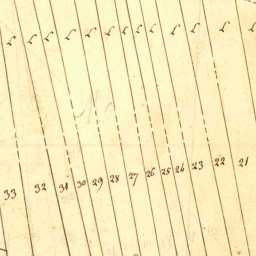 33 32 31 30 29 28 27 26 25 26 23 22 21